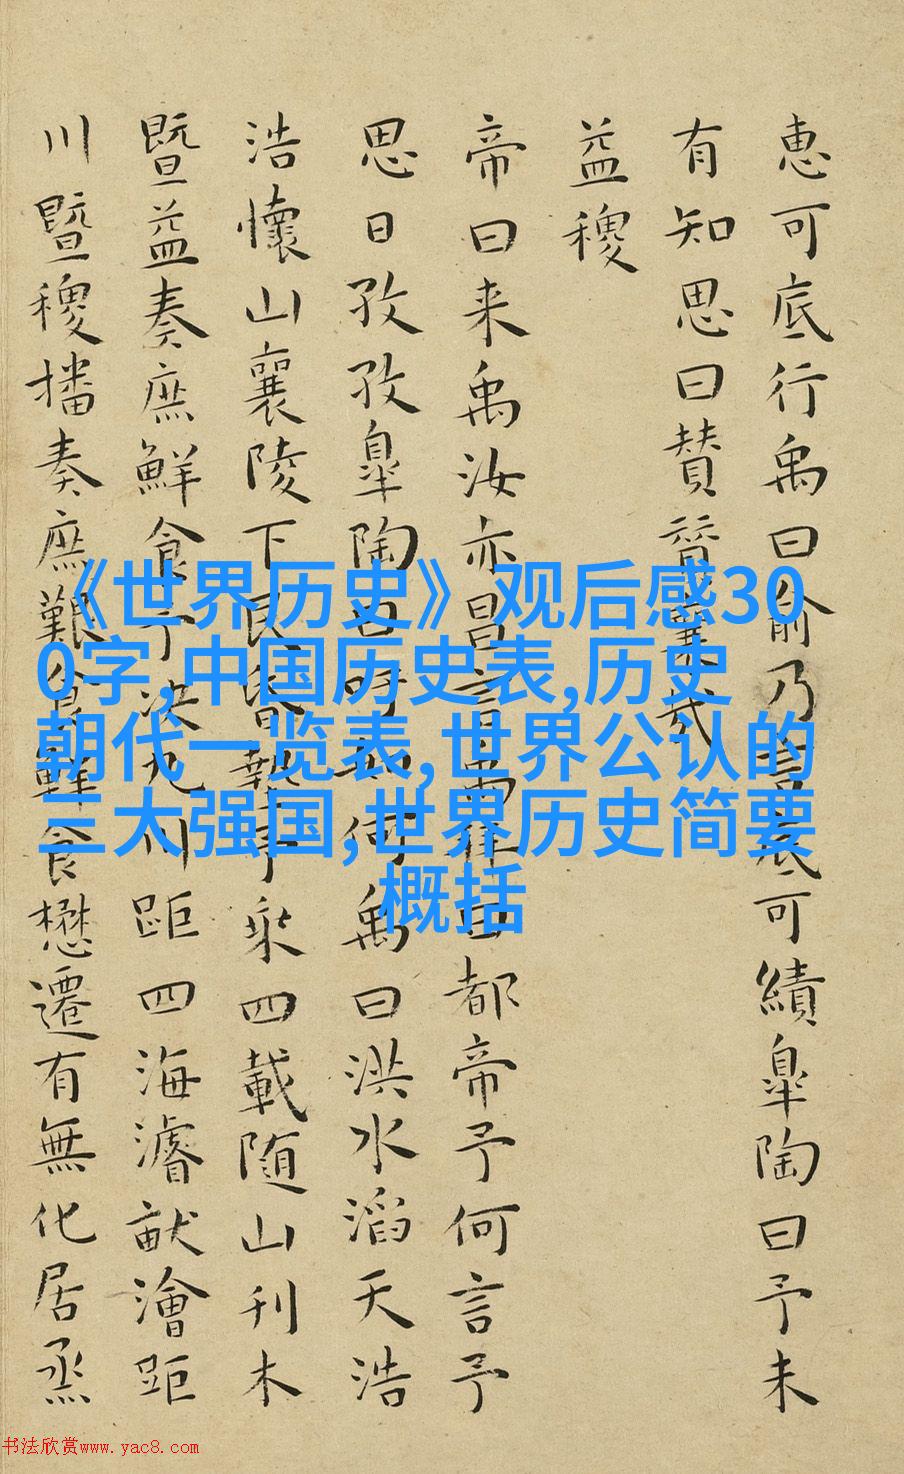 惠可底行禹曰俞乃言底可績皐陶曰予未
有知思曰贊贊襄哉
益稷
帝曰来禹汝亦昌言禹拜曰都帝予何言予
思日孜孜皐陶曰吁如何禹曰洪水滔天浩
浩懷山襄陵下民昏墊予乘四載随山刊木
暨益奏庶鮮食予决九川距四海濬畎澮距
川暨稷播奏庶艱食鮮食懋遷有無化居烝
《世界历史》观后感30
0字,中国历史表,历史
朝代一览表,世界公认的
三大强国,世界历史简要
概括
书法欣赏www.yac8.com